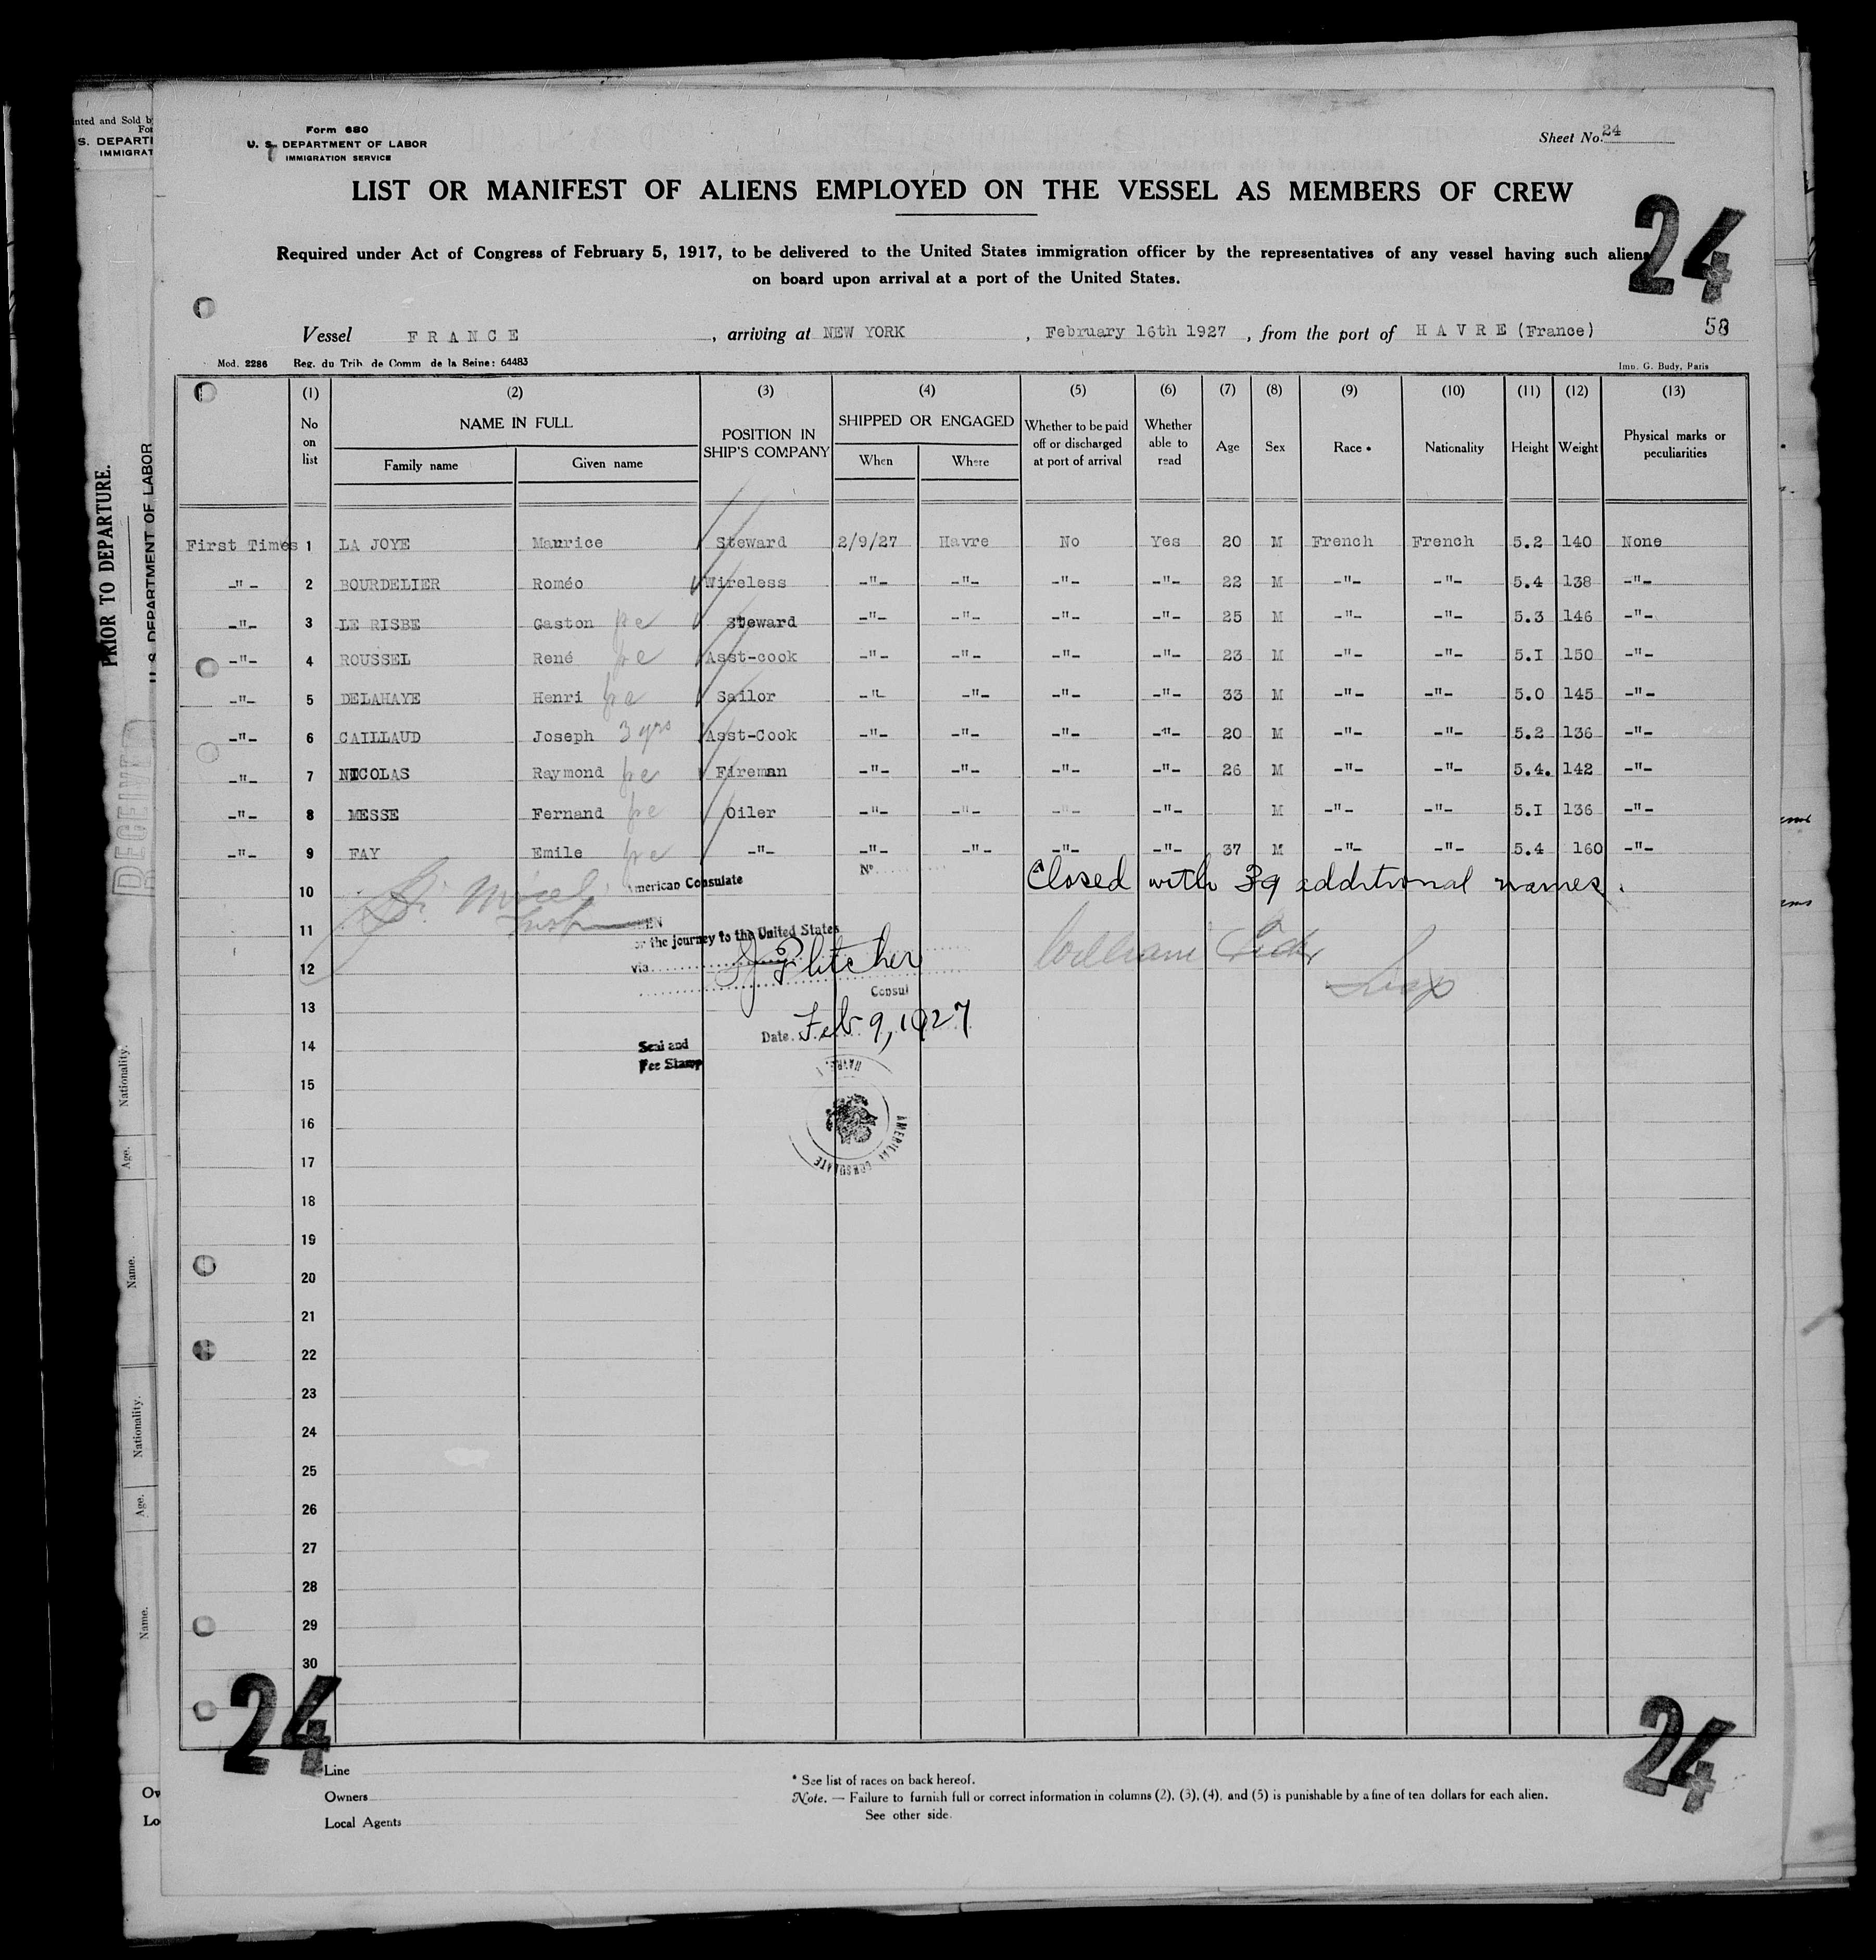 Form 680
U. S. DEPARTMENT OF LABOR
IMMIGRATION SERVICE
Sheet No. 24
LIST OR MANIFEST OF ALIENS EMPLOYED ON THE VESSEL AS MEMBERS OF CREW
24
Required under Act of Congress of February 5, 1917, to be delivered to the United States immigration officer by the representatives of any vessel having such aliens
on board upon arrival at a port of the United States.
Vessel FRANCE, arriving at NEW YORK, February 16th 1927, from the port of HAVRE (France) 58
Mod. 2286 Reg. du Trib. de Comm de la Seine: 64483 Imp. G. Budy, Paris
(1) (2) (3) (4) (5) (6) (7) (8) (9) (10) (11) (12) (13)
No on list NAME IN FULL Family name Given name POSITION IN SHIP'S COMPANY SHIPPED OR ENGAGED When Where Whether to be paid off or discharged at port of arrival Whether able to read Age Sex Race * Nationality Height Weight Physical marks or peculiarities
First Times 1 LA JOYE Maurice Steward 2/9/27 Havre No Yes 20 M French French 5.2 140 None
-"- 2 BOURDELIER Roméo Wireless -"- -"- -"- -"- 22 M -"- -"- 5.4 138 -"-
-"- 3 LE RISBE Gaston Steward -"- -"- -"- -"- 25 M -"- -"- 5.3 146 -"-
-"- 4 ROUSSEL René Asst-cook -"- -"- -"- -"- 23 M -"- -"- 5.I 150 -"-
-"- 5 DELAHAYE Henri Sailor -"- -"- -"- -"- 33 M -"- -"- 5.0 145 -"-
-"- 6 CAILLAUD Joseph 3 yrs Asst-Cook -"- -"- -"- -"- 20 M -"- -"- 5.2 136 -"-
-"- 7 NICOLAS Raymond Fireman -"- -"- -"- -"- 26 M -"- -"- 5.4. 142 -"-
-"- 8 MESSE Fernand Oiler -"- -"- -"- -"- M -"- -"- 5.I 136 -"-
-"- 9 FAY Emile -"- -"- -"- -"- -"- 37 M -"- -"- 5.4 160 -"-
No
10 American Consulate Closed with 39 additional names.
11
for the journey to the United States
12 via William
Consul
13
Date Feb 9, 1927
14 Seal and
Fee Stamp
HAVRE
AMERICAN CONSULATE
15
16
17
18
19
20
21
22
23
24
25
26
27
28
29
30
24
24
Line
Owners
Local Agents
* See list of races on back hereof.
Note. — Failure to furnish full or correct information in columns (2), (3), (4), and (5) is punishable by a fine of ten dollars for each alien.
See other side.
PRIOR TO DEPARTURE.
U. S. DEPARTMENT OF LABOR
Nationality.
Age.
Name.
Nationality.
Age.
Name.